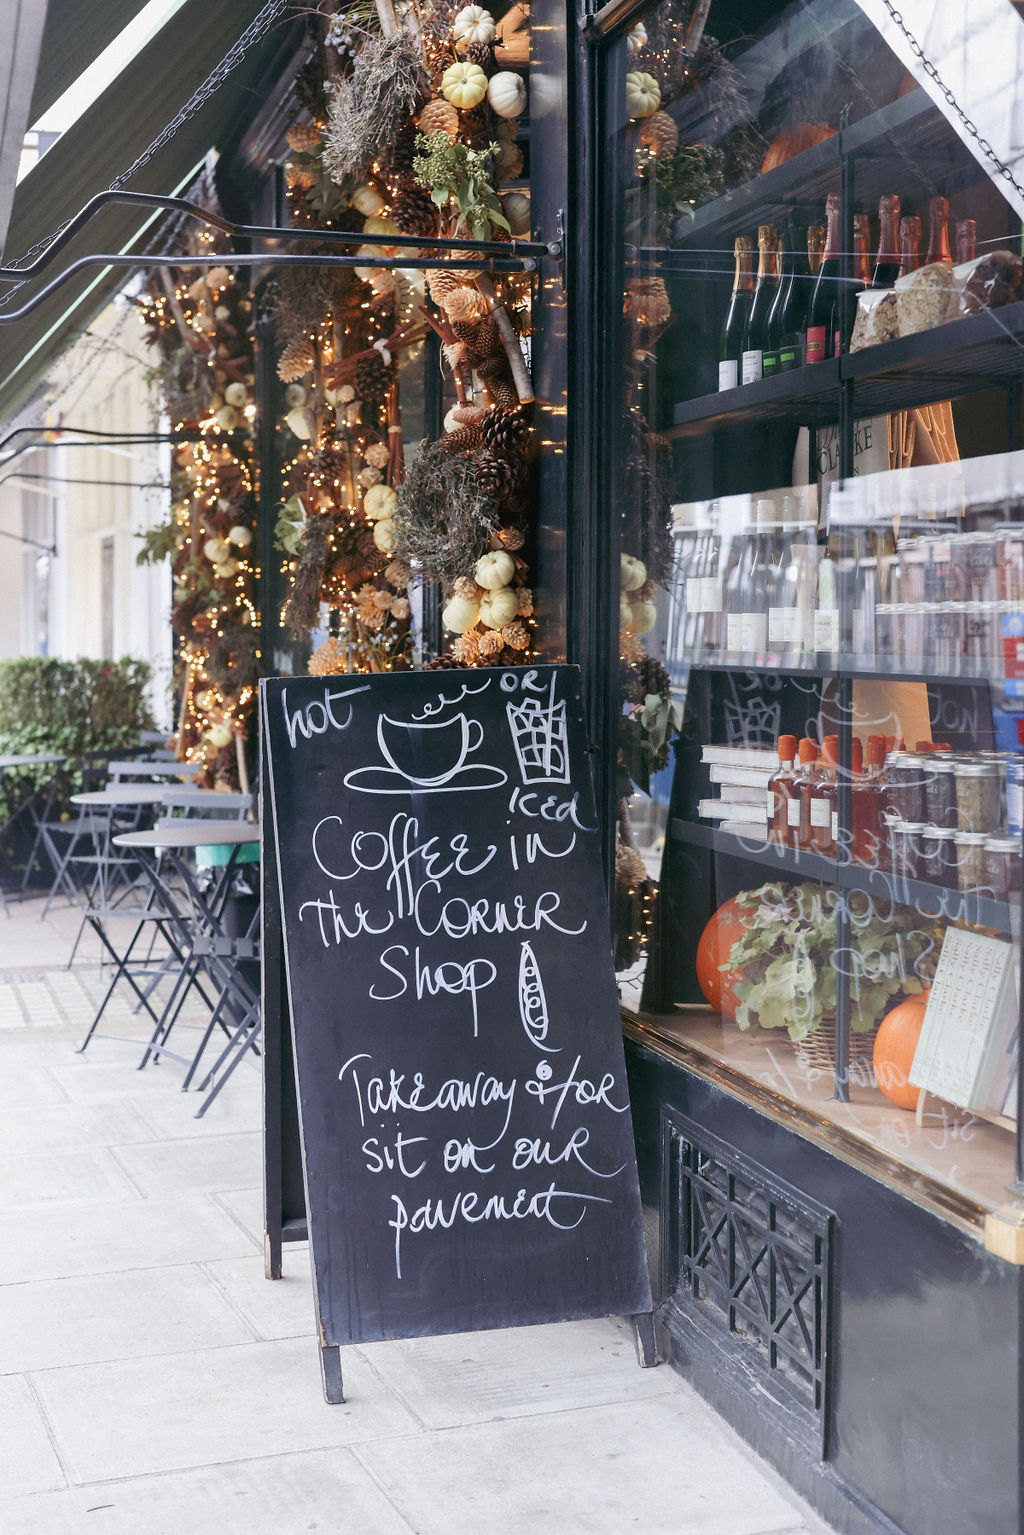 hot
OR
iced
Coffee in
The Corner
Shop
Takeaway &/or
sit on our
pavement